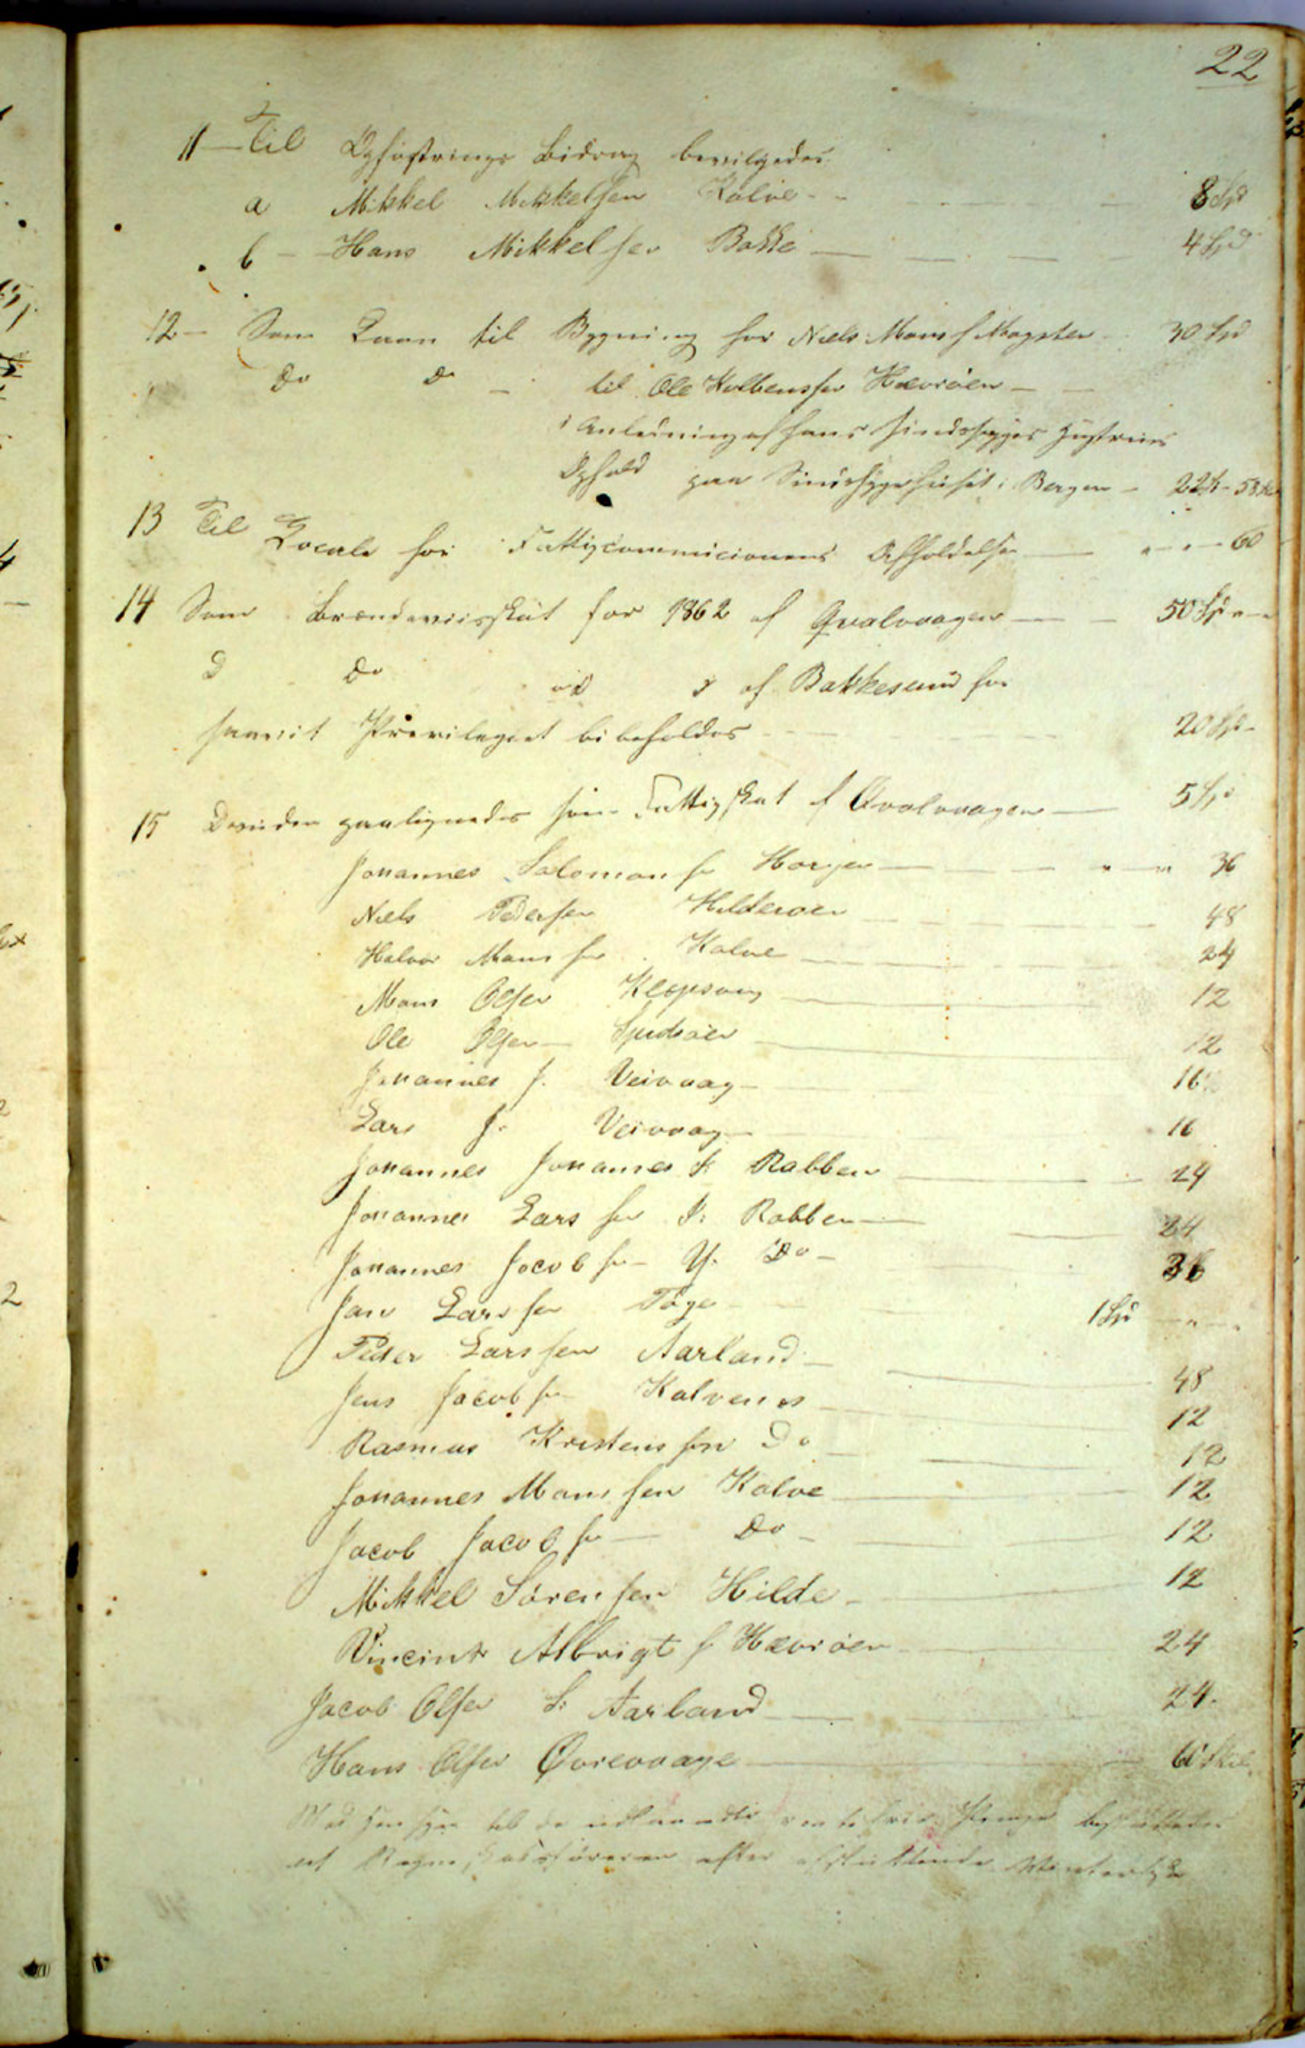 22
11 - Til Opfostrings Bidrag bevilgedes
a Mikkel Mikkelsen Kalve - - 8 Spd
b - Hans Mikkelsen Bakke - 4 Spd
12 - Som Laan til Bygning for Niels Mons s Magster 30 Spd
Do Do - til Ole Kolbenssen Hævröen -
i Anledning af hans sindssyges Hustrues
Ophold paa Sindssygehuset i Bergen - 22 - 58
13 Til Locale for Fattigcommicionens Afholdelse - " - " - 60
14 Som Brændeviisskat for 1862 af Qvalvaagen - 50 Spd " - "
D Do af Bakkesund for
saavit Privilegiet bibeholdes 20 Spd -
15 Desuden paalignedes som Fattigskat af Qvalvaagen - 5 Spd
Johannes Salomons sen - " - " 36
Niels Pedersen Hilderøen 48
Halvor Mons sen Kalve 24
Mons Olsen Kleppsvaag 12
Ole Olsen - 12
Johannes J. Veivaag - 16
Lars J. Veivaag - 16
Johannes Johannes s. Rabben 24
Johannes Lars sen I. Rabben - 24
Johannes Jacob sen - Y. Do - 36
Jan Lars sen Töge 1 Spd - " -
Peder Lars sen Aarland - 48
Jens Jacob sen Kalvenes 12
Rasmus Kristens sen Do 12
Johannes Mons sen Kalve 12
Jacob Jacob sen - Do - 12
Mikkel Sören sen Hilde - 12
Vincents Albrigt s Hævröen 24
Jacob Olsen I. Aarland 24
Hans Olsen Øvrevaage 60 Skil
Med Hensyn til de Penge besluttedes
at efter